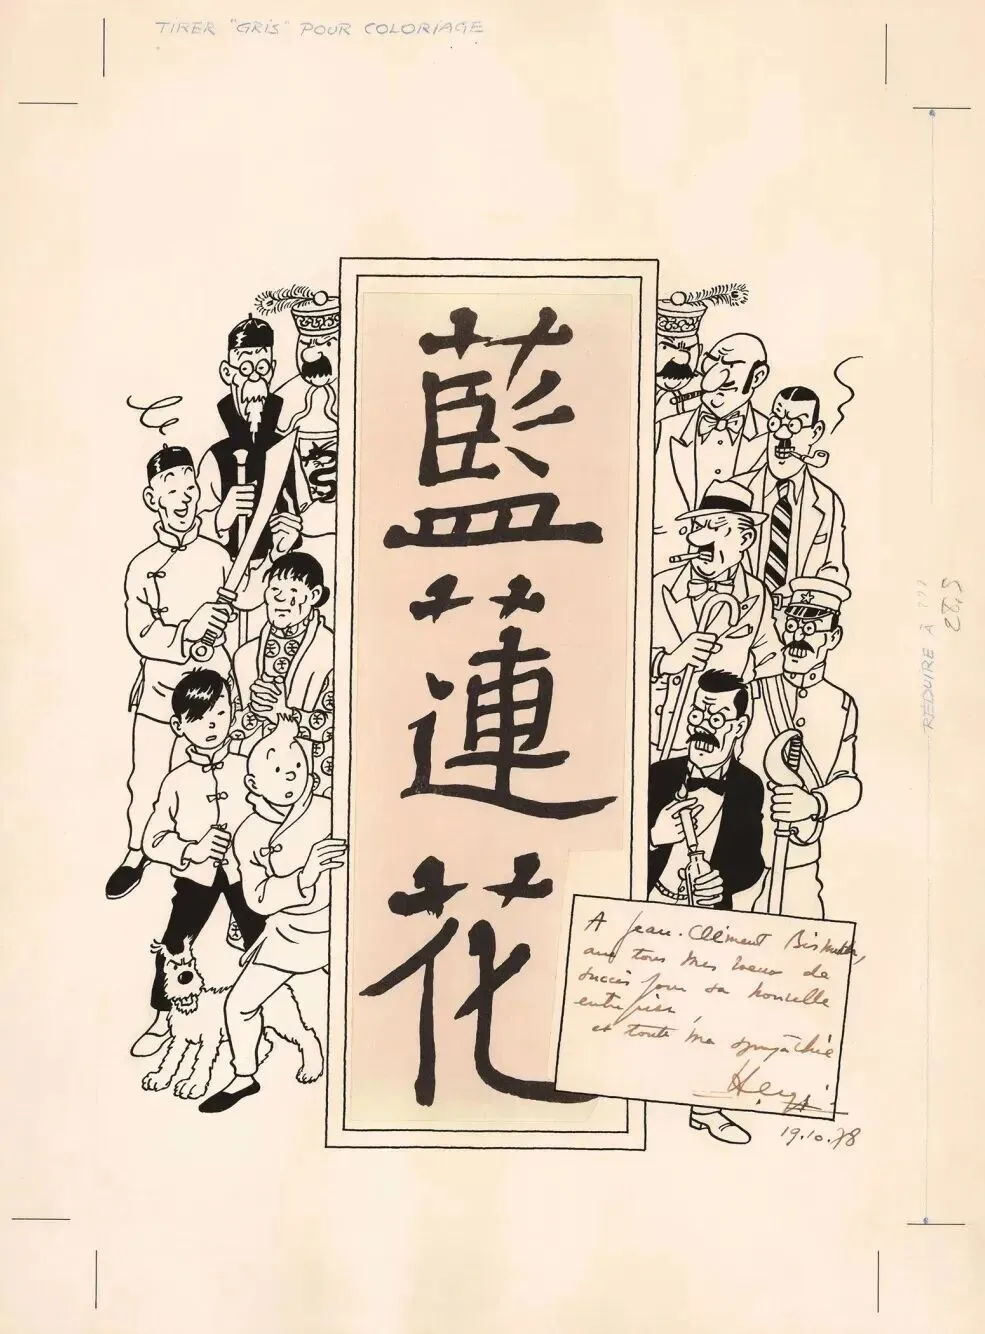 TIRER "GRIS" POUR COLORIAGE
藍
蓮
花
REDUIRE À
A Jean-Clément Bismuth,
avec tous mes vœux de
succès pour sa nouvelle
entreprise,
et toute ma sympathie
Hergé
19.10.78